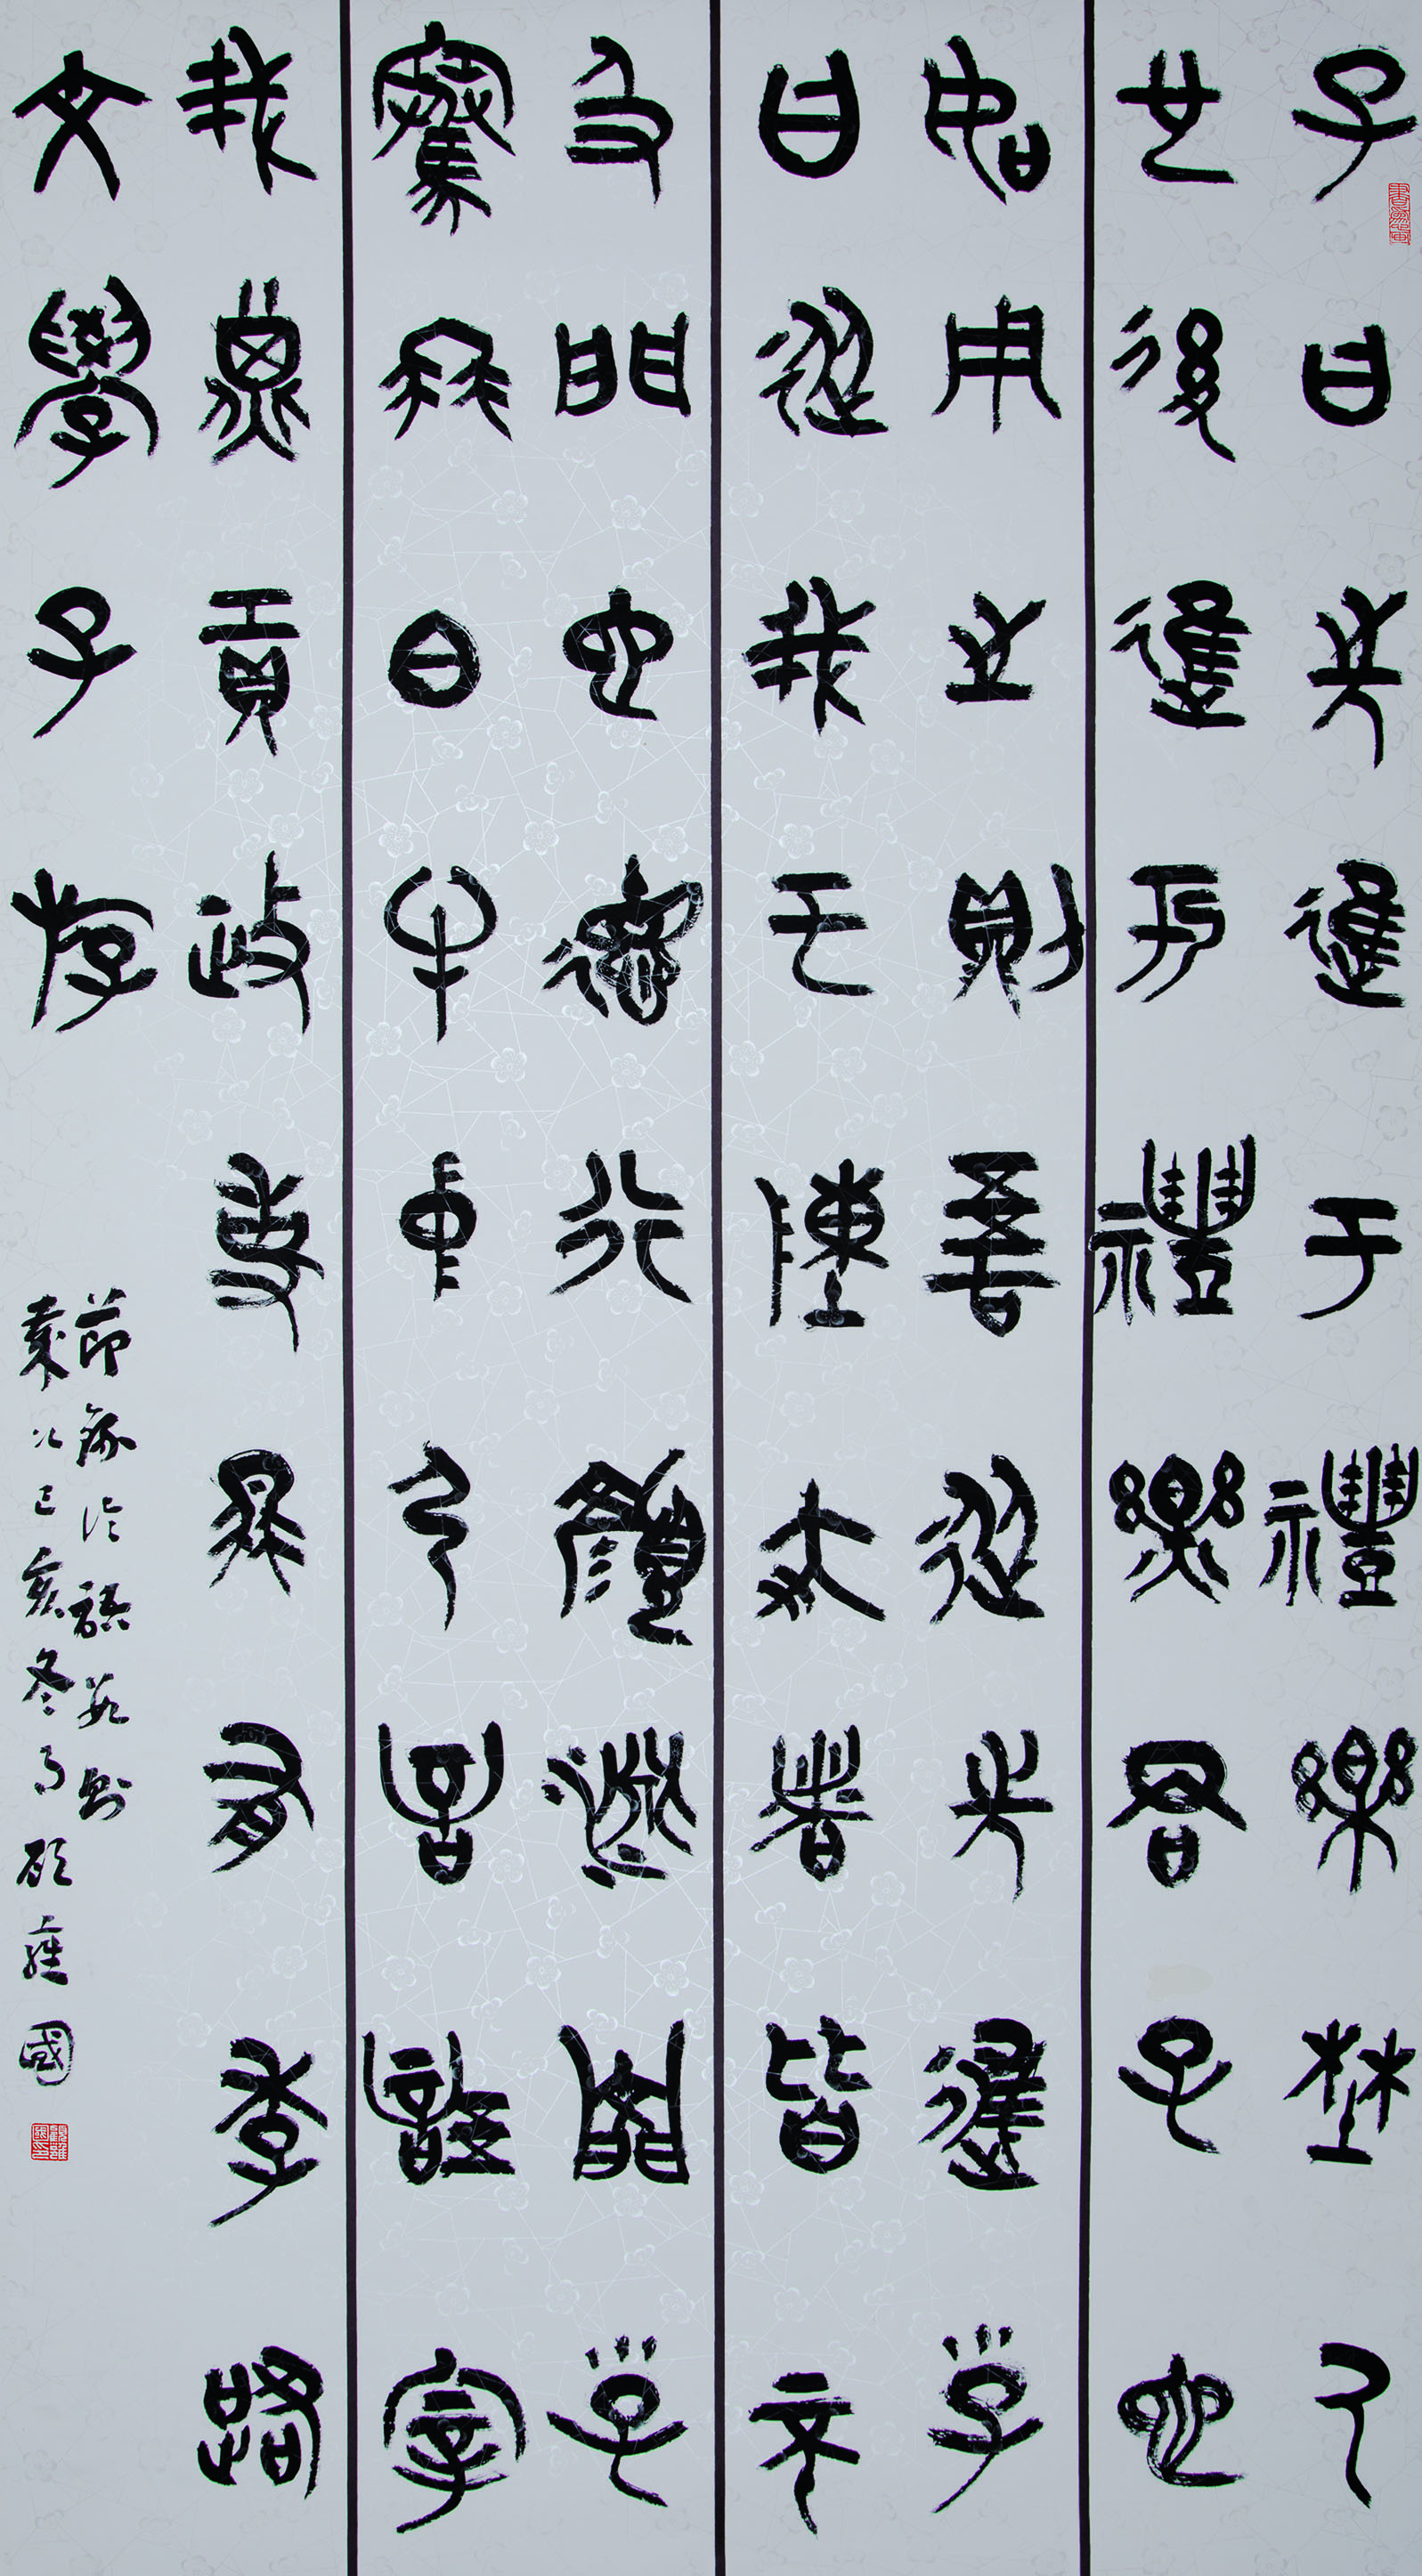 子曰先進于禮樂野人
也後進于禮樂君子也
如用之則吾從先進子
曰從我于陳蔡者皆不
及門也德行顏淵閔子
騫冉白牛中弓言語宰
我子貢政事冉有季路
文學子游
節錄論語數則
歲次己亥冬月顧雍國